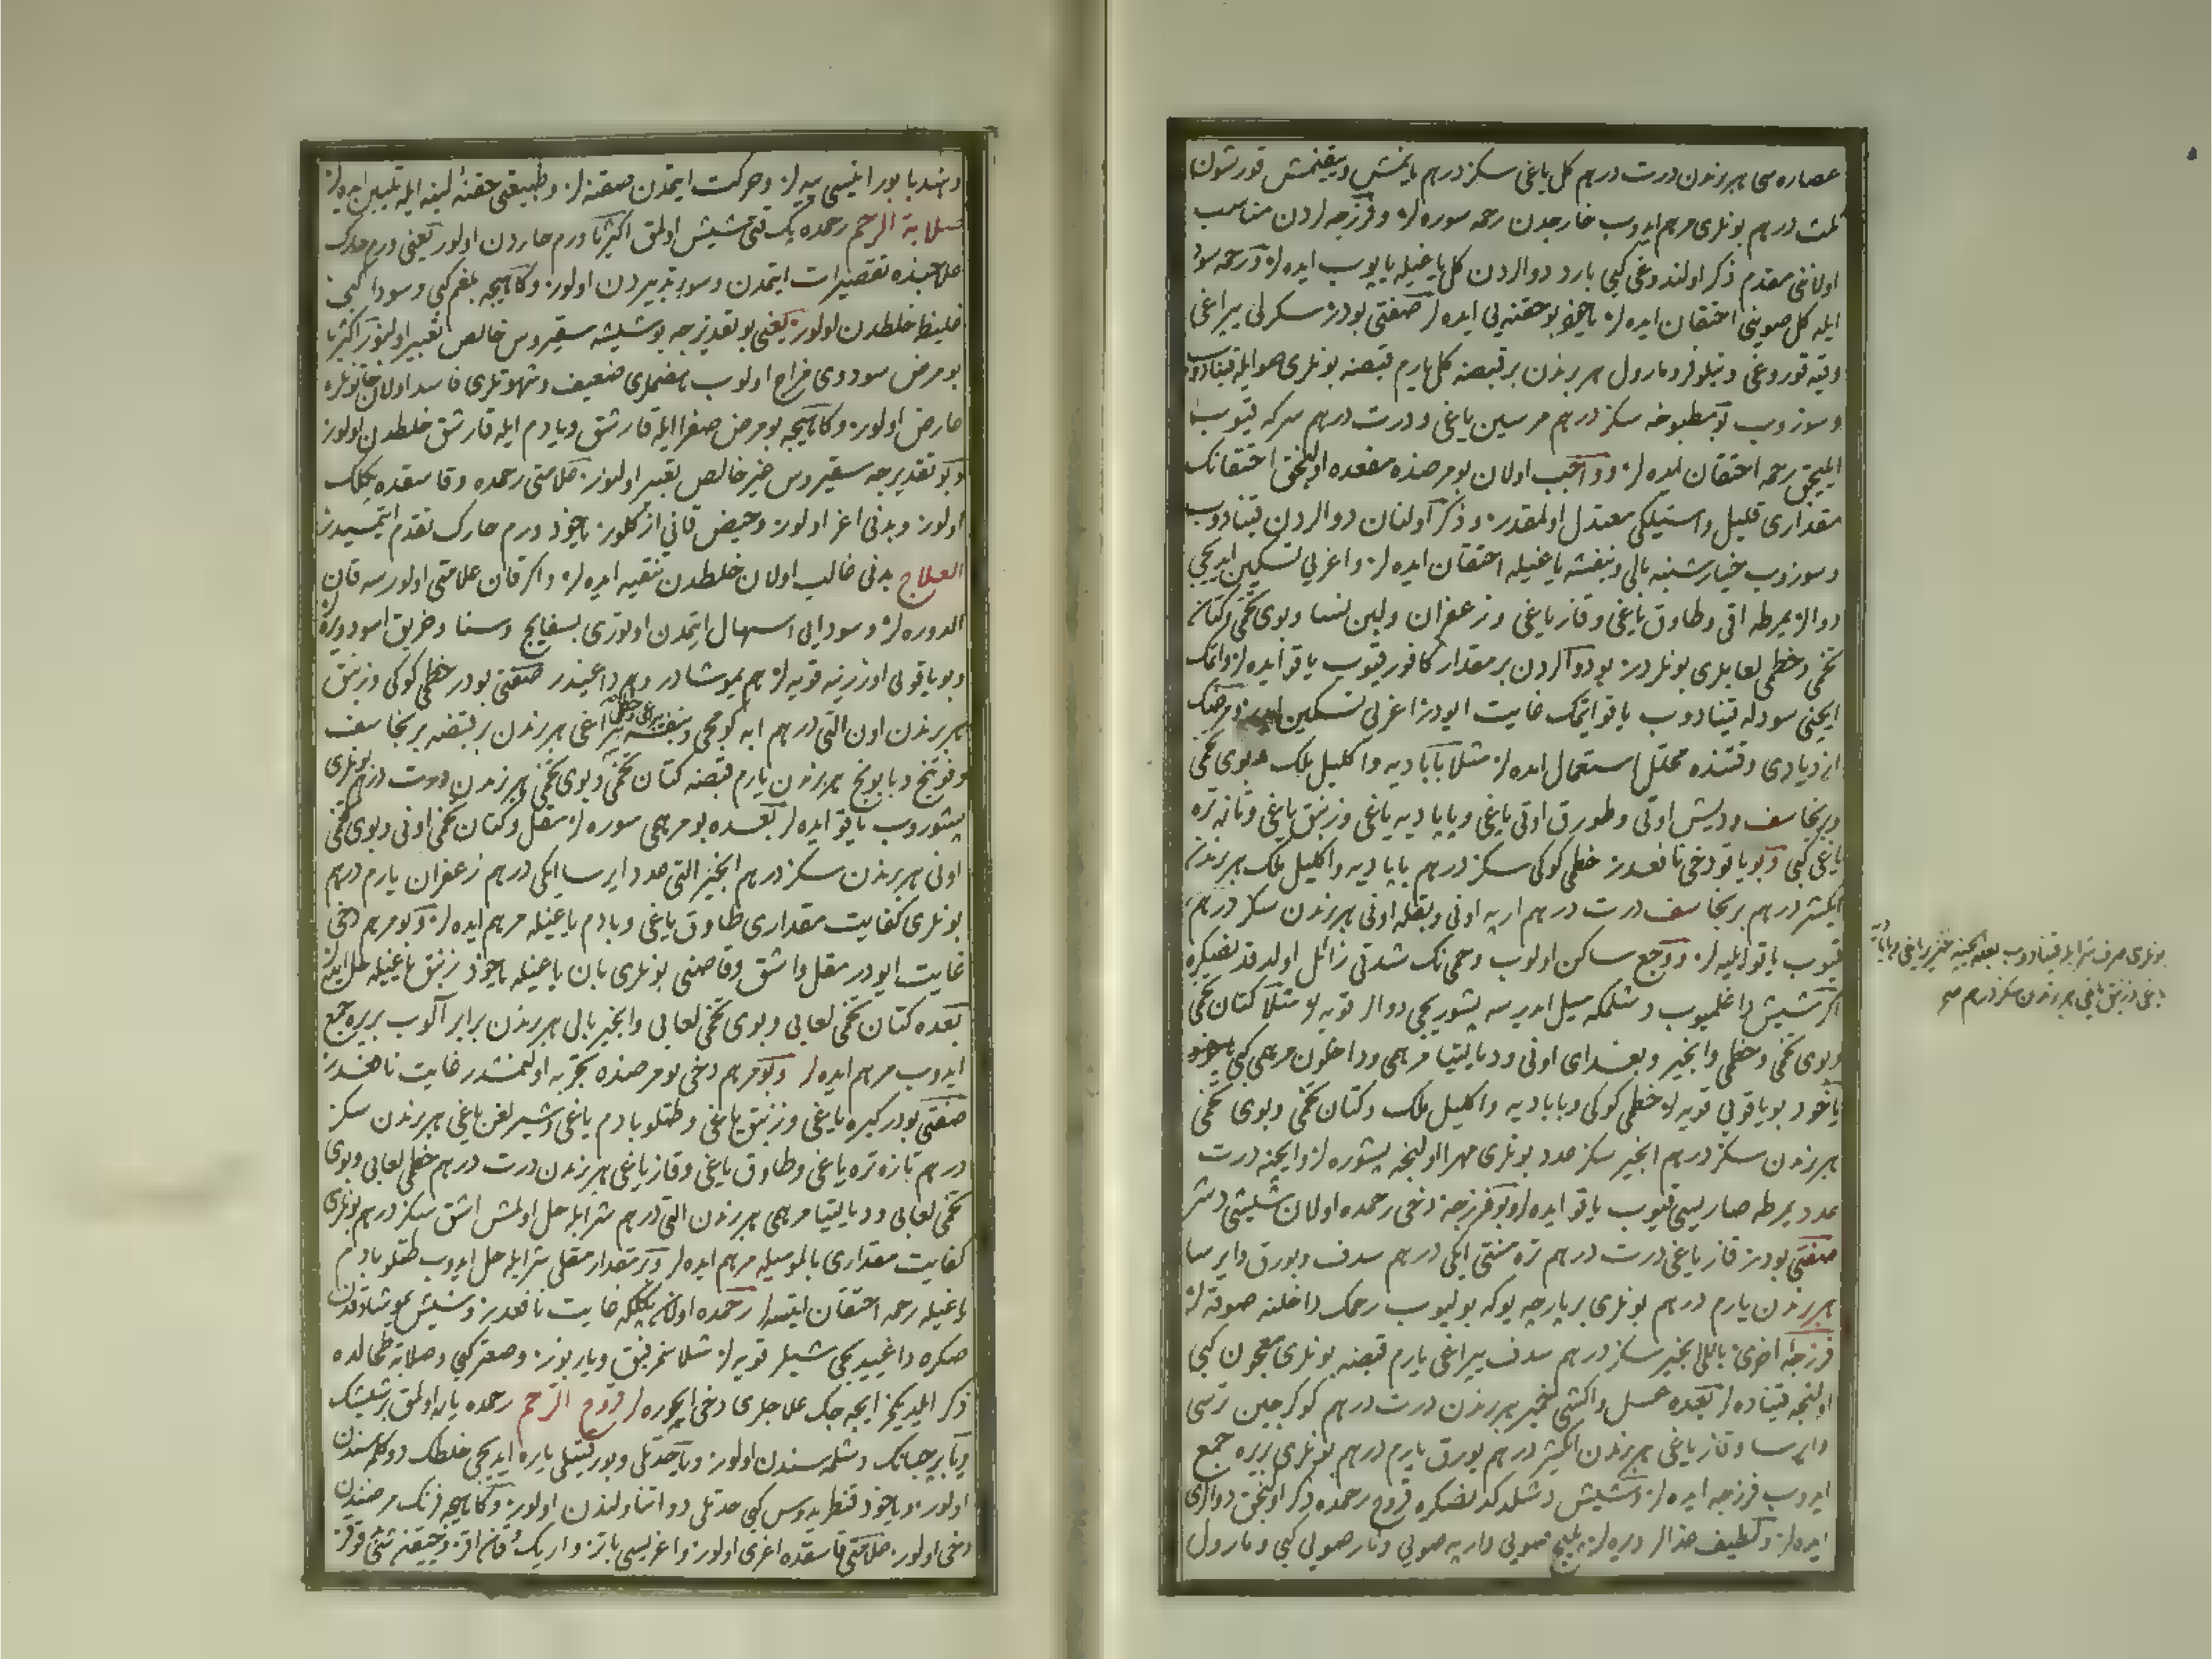 عصاره سی هر برندن درت درهم كل ياغی سكز درهم يانمش ويیقنمش قورشون
درهم بونلری مرهم ايدوب خارجدن رحمه سوره لر وفرزجه لردن مناسب
اولانی مقدم ذكر اولندوغی كبی بارد دوالردن كل ياغيله ياپوب ايده لر ورحمه سود
ايله كل صويینی احتقان ايده لر ياخود بو حقنه يی ايده لر صفتی بودر سكرلی يپراغی
قوروغی ونيلوفر ومارول هر برندن بر قبضه كل يارم قبضه بونلری صو ايله قينادوب
وسوزوب بو مطبوخه سكز درهم مرسين ياغی ودرت درهم سركه قيوب
ايليجق رحمه احتقان ايده لر وواجب اولان بو مرضده مقعده اولنجق احتقانك
مقداری قليل واستيلكی معتدل اولمقدر وذكر اولنان دوالردن قينادوب
وسوزوب خيارشنبه بالی وبنفشه ياغيله احتقان ايده لر واغريی تسكين ايديجی
دوالر يمرطه اقی وطاوق ياغی وقاز ياغی وزعفران ولبن نسا وبوی تخمی وكتان
تخمی وخطمی لعابلری بونلردر بو دوالردن بر مقدار كافور قيوب ياقو ايده لر واتمك
ايچنی سودله قينادوب ياقو ايتمك غايت ايودر اغريی تسكين ايدر ومرضك
ازديادی وقتنده محلل استعمال ايده لر مثلا باباديه واكليل ملك وبوی تخمی
وبرنجاسف ودیش اوتی وطورق اوتی ياغی وپاپاديه ياغی وزنبق ياغی وتازه تره
ياغی كبی وبو ياقو دخی نافعدر خطمی كوكی سكز درهم پاپاديه واكليل ملك هر برندن
ايكيشر درهم برنجاسف درت درهم ارپه اونی وبقله اونی هر برندن سكز درهم
قيوب ياقو ايليه لر ووجع ساكن اولوب وحمی نك شدتی زائل اولدقدنصكره
اكر شيش داغلميوب دشلمكه ميل ايدرسه پشوريجی دوالر قويه لر مثلا كتان تخمی
وبوی تخمی وخطمی وانجير وبغدای اونی ودياليتيا مرهمی وداخلون مرهمی كبی
ياخود بو ياقويی قويه لر خطمی كوكی وپاپاديه واكليل ملك وكتان تخمی وبوی تخمی
هر برندن سكز درهم انجير سكز عدد بونلری مهرا اولنجه پشوره لر وايچنه درت
عدد يمرطه صاريسی قيوب ياقو ايده لر وبو فرزجه دخی رحمده اولان شيشی دشر
صفتی بودر قاز ياغی درت درهم تره منتی ايكی درهم سدف وبورق وايرسا
هر برندن يارم درهم بونلری بر پارچه يوكه بوليوب رحمك داخلنه صوقه لر
فرزجهٔ اخری باللی انجير سكز درهم سدف يپراغی يارم قبضه بونلری معجون كبی
اولنجه قيناده لر بعده عسل واكشی خمير هر برندن درت درهم كوكرجين ترسی
وايرسا وقاز ياغی هر برندن ايكيشر درهم بورق يارم درهم بونلری بريره جمع
ايدوب فرزجه ايده لر وشيش دشلدكدنصكره قروح رحمده ذكر اولنجق دوالری
ايده لر ولطيف غذالر ويره لر پلیچ صويی وارپه صويی ونار صويی كبی ومارول
بونلری صرف شرابله قينادوب بعده ايچنه خنزير ياغی وپاپاديه
ياغی وزنبق ياغی هر برندن سكز درهم صح
وهندبا بورانيسی ييه لر وحركت ايتمدن صقنه لر وطبيعتی حقنهٔ لينه ايله تليين ايده لر
صلابة الرحم رحمده پك قتی شيش اولمق اكثريا ورم حاردن اولور يعنی ورم حارك
علاجنده تقصيرات ايتمدن وسوء تدبيردن اولور وكاهيجه بلغم كبی وسودا كبی
غليظ خلطدن اولور يعنی بو تقديرجه بو شيشه سقيروس خالص تعبير اولنور اكثريا
بو مرض سوداوی مزاج اولوب هضملری ضعيف وشهوتلری فاسد اولان خاتونلره
عارض اولور وكاهيجه بو مرض صفرا ايله قارشق وياد م ايله قارشق خلطدن اولور
وبو تقديرجه سقيروس غير خالص تعبير اولنور علامتی رحمده وقاسقده پكلك
اولور وبدنی اغر اولور وحيض قانی از كلور ياخود ورم حارك تقدم ايتمسيدر
العلاج بدنی غالب اولان خلطدن تنقيه ايده لر واكر قان علامتی اولورسه قان
الدوره لر وسودايی اسهال ايتمدن اوتوری بسفايج وسنا وخربق اسود ويره لر
وبو ياقويی اوزرينه قويه لر هم يموشادر وهم داغيدر صفتی بودر خطمی كوكی وزنبق
هر برندن اون التی درهم ابه كومجی وبنفشه يپراغی هر برندن بر قبضه برنجاسف
وفوتنج وبابونج هر برندن يارم قبضه كتان تخمی وبوی تخمی هر برندن درت درهم بونلری
پشوروب ياقو ايده لر بعده بو مرهمی سوره لر مقل وكتان تخمی اونی وبوی تخمی
اونی هر برندن سكز درهم انجير التی عدد ايرسا ايكی درهم زعفران يارم درهم
بونلری كفايت مقداری طاوق ياغی وبادم ياغيله مرهم ايده لر وبو مرهم دخی
غايت ايودر مقل واشق وقاصنی بونلری بان ياغيله ياخود زنبق ياغيله حل ايده لر
بعده كتان تخمی لعابی وبوی تخمی لعابی وانجير بالی هر برندن برابر آلوب بريره جمع
ايدوب مرهم ايده لر وبو مرهم دخی بو مرضده تجربه اولنمشدر غايت نافعدر
صفتی بودر كبره ياغی وزنبق ياغی وطتلو بادم ياغی وشيرلغن ياغی هر برندن سكز
درهم تازه تره ياغی وطاوق ياغی وقاز ياغی هر برندن درت درهم خطمی لعابی وبوی
تخمی لعابی ودياليتيا مرهمی هر برندن التی درهم شرابله حل اولمش اشق سكز درهم بونلری
كفايت مقداری بالموميله مرهم ايده لر وبر مقدار مقلی شرابله حل ايدوب طتلو بادم
ياغيله رحمه احتقان ايتسه لر رحمده اولان پكلكه غايت نافعدر وشيش يموشادقدن
صكره داغيديجی شيلر قويه لر مثلا خربق وياربوز وصعتر كبی وصلابة طحالده
ذكر ايلديكمز ايچه جك علاجلری دخی ايچوره لر قروح الرحم رحمده ياره اولمق بر شيشك
ويا بر چبانك دشلمه سندن اولور ويا حدتلی وبورقيتلی ياره ايديجی خلطك دوكلمه سندن
اولور وياخود قنطريدوس كبی حدتلی دوا تناولندن اولور وكاهيجه فرنك مرضندن
دخی اولور علامتی قاسقده اغری اولور واغريسی باتر واريك قان اقر